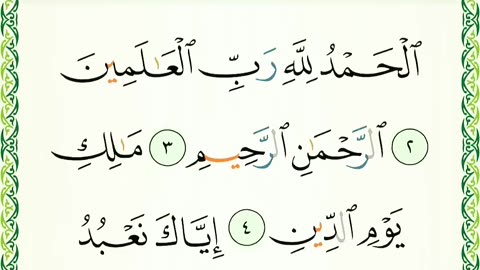 ٱلْحَمْدُ لِلَّهِ رَبِّ ٱلْعَـٰلَمِينَ
٢ ٱلرَّحْمَـٰنِ ٱلرَّحِيمِ ٣ مَـٰلِكِ
يَوْمِ ٱلدِّينِ ٤ إِيَّاكَ نَعْبُدُ